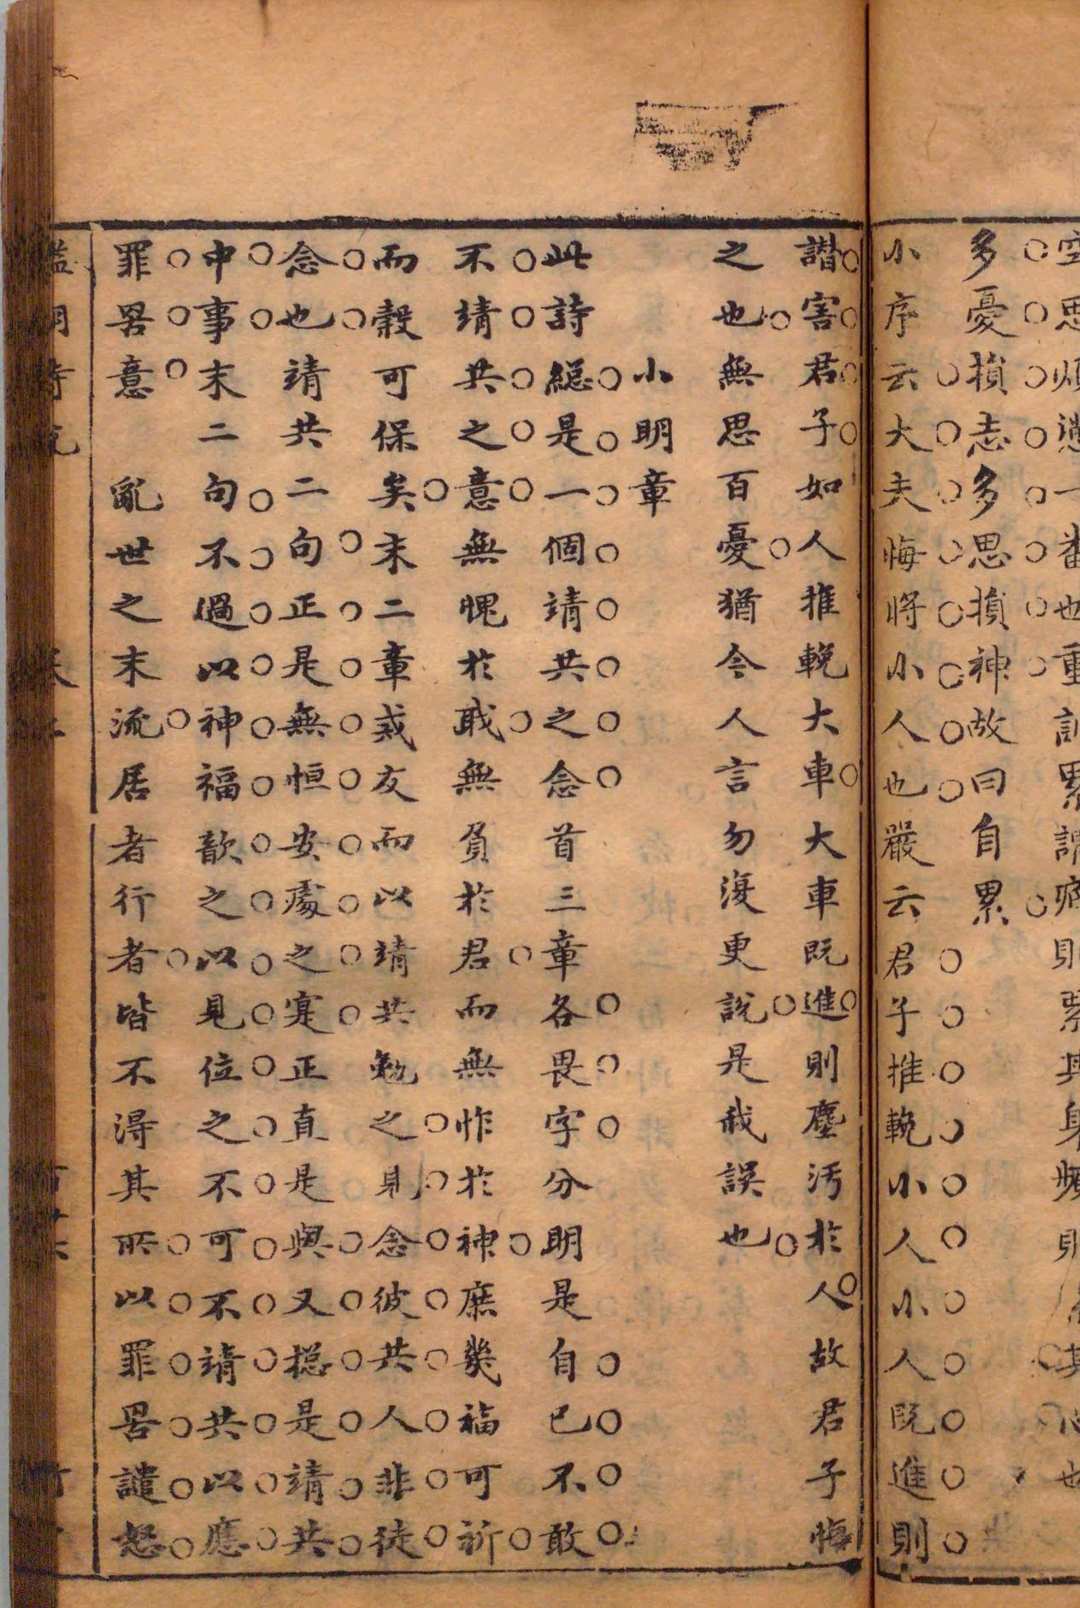 空思煩懣一番也重訓累謂病則累其身頻則累其心也
多憂損志多思損神故曰自累
小序云大夫悔將小人也嚴云君子推輓小人小人既進則
譖害君子如人推輓大車大車既進則塵污於人故君子悔
之也無思百憂猶今人言勿復更說是我誤也
小明章
此詩總是一個靖共之念首三章各畏字分明是自己不敢
不靖共之意無愧於職無負於君而無怍於神庶幾福可祈
而穀可保矣末二章戒友而以靖共勉之見念彼共人非徒
念也靖共二句正是無恒安處之寔正直是與又總是靖共
中事末二句不過以神福歆之以見位之不可不靖共以應
罪罟意　亂世之末流居者行者皆不得其所以罪罟譴怒